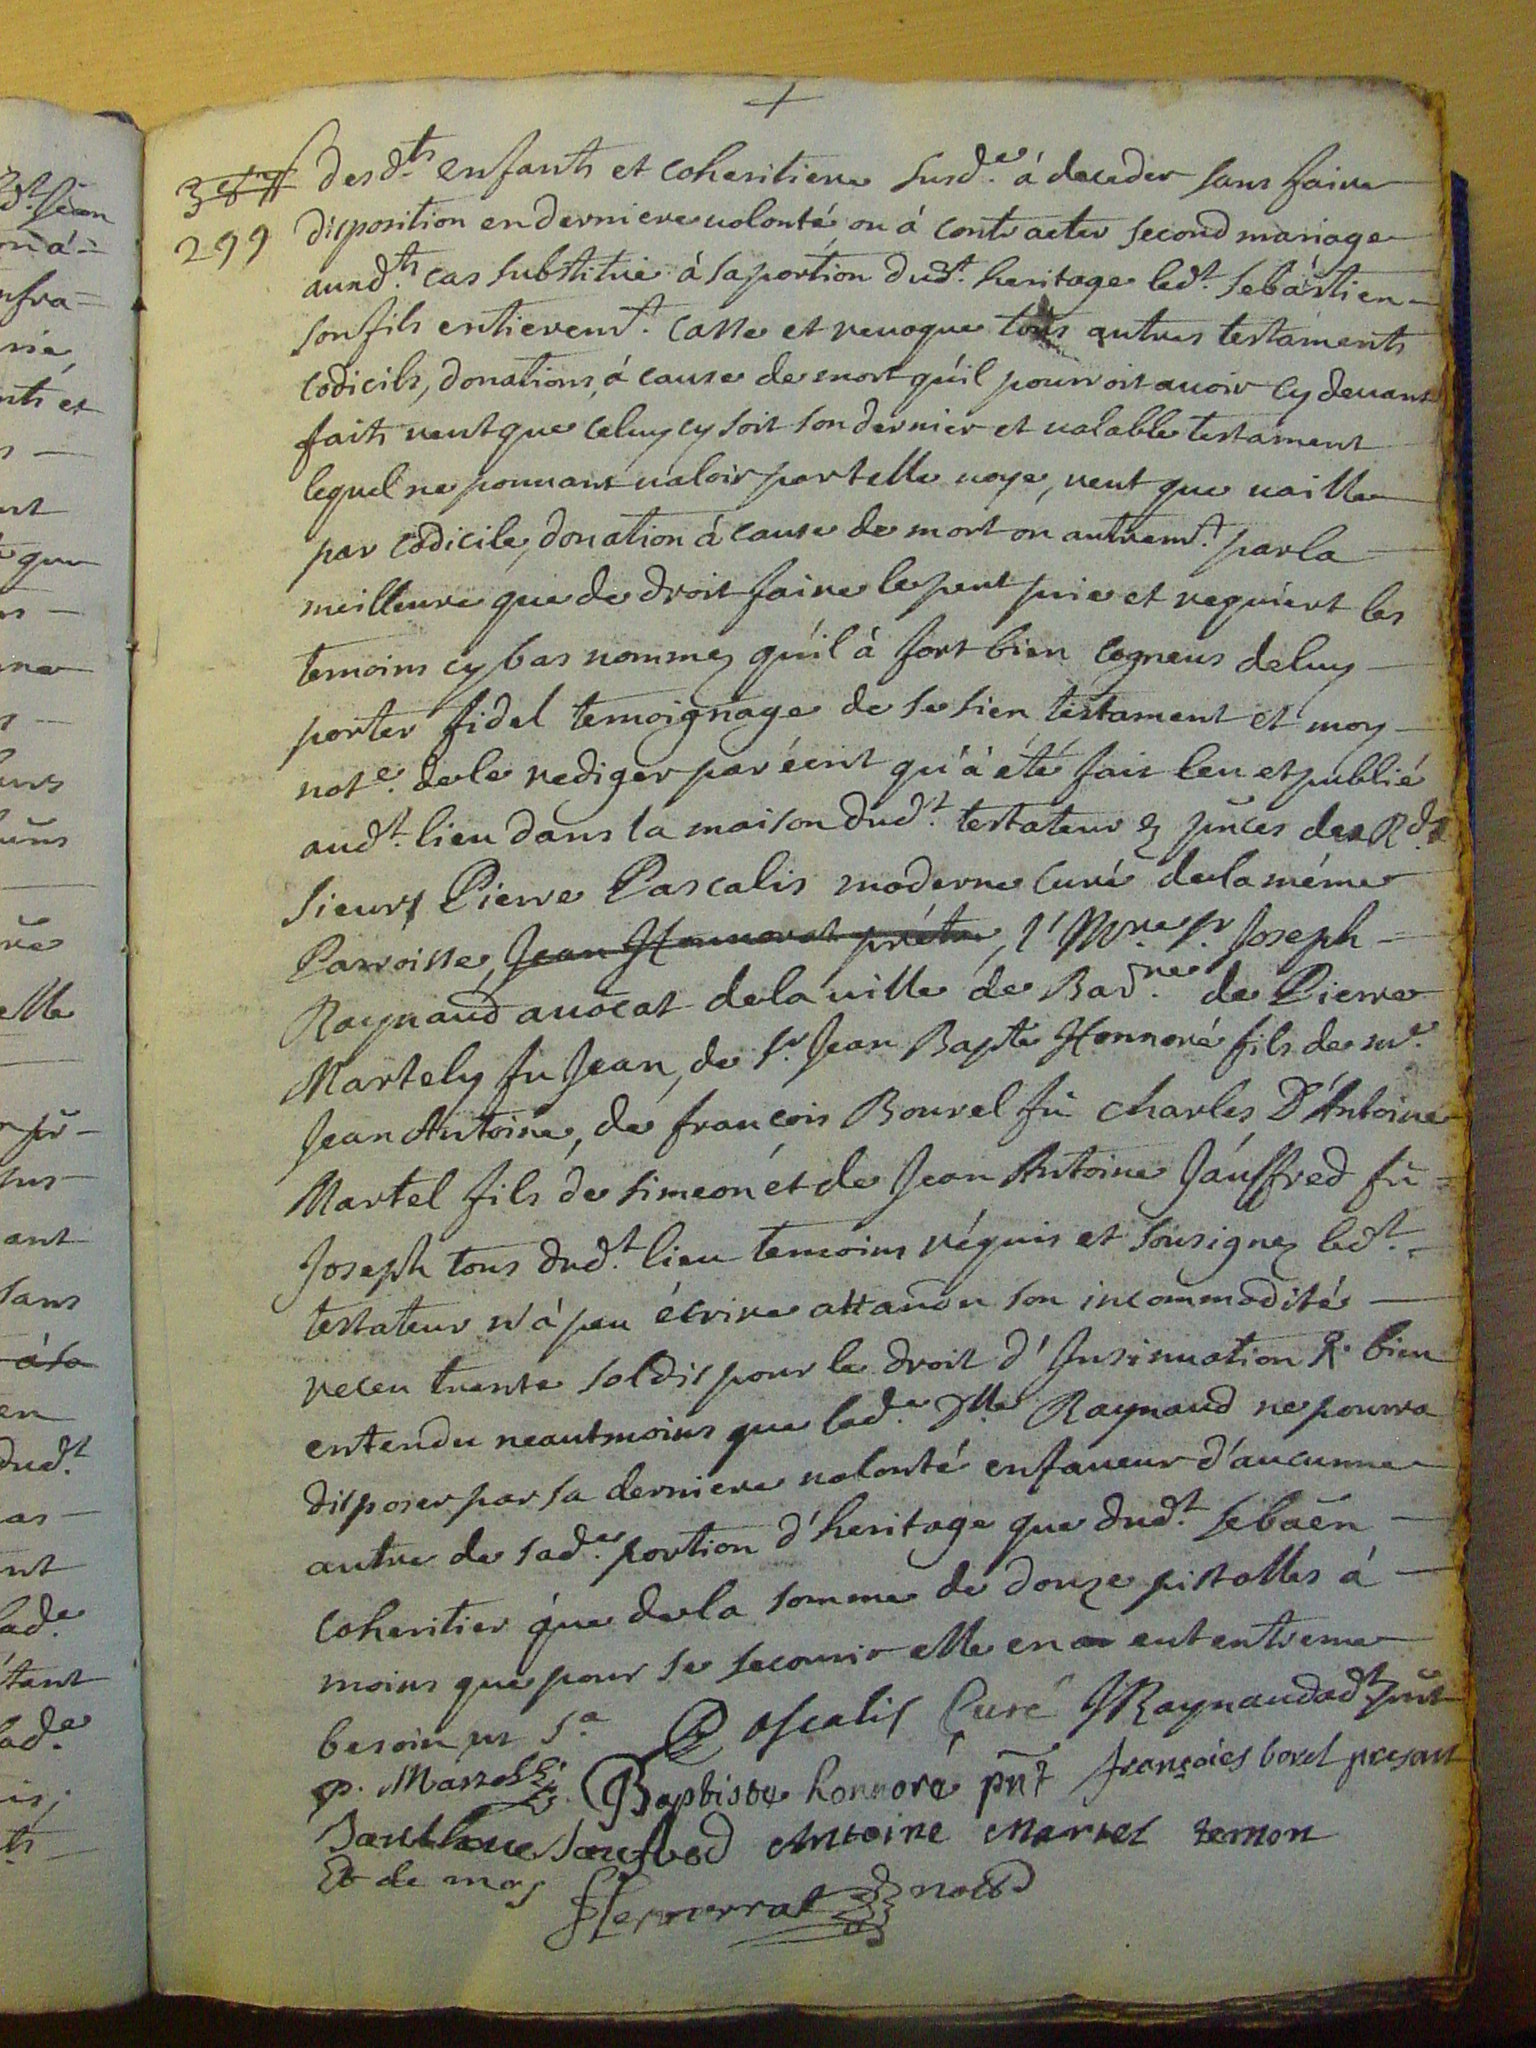 +
desd.ts enfants et coheritiere susd.e á deceder sans faire
299 disposition en derniere uolonté ou á contracter second mariage
auxd.ts cas substitué á sa portion dud.t heritage led.t Sebastien
son fils entierem.t casse et reuoque tous autres testaments
codicils, donations á cause de mort qúil pourroit auoir cy deuant
faits ueut que celuy cy soit son dernier et ualable testament
lequel ne pouuant ualoir par telle uoye, ueut que uaille
par codicile, donation á cause de mort ou autrem.t par la
meilleure que de droit faire le peut prie et requiert les
temoins cy bas nommez qúil á fort bien cogneus de luy
porter fidel temoignage de se sien testament et moy
not.e de le rediger par écrit qu'á été fait leu et publié
aud.t lieu dans la maison dud.t testateur ez pñces des R.d
Sieurs Pierre Pascalis moderne Curé de la méme
Parroisse, Jean Honnorat prétre, M.re S.r Joseph
Raynaud auocat de la uille de Bar.ne de Pierre
Martely fu Jean, de S.r Jean Bap.te Honnoré fils de m.e
Jean Antoine, de françois Bourel fú Charles, D'Antoine
Martel fils de Simeon et de Jean Antoine Jáuffred fú
Joseph tous dud.t lieu temoins réquis et sousignez led.t
testateur n'á peu écrire attandu son incommodité
receu trente soldis pour le droit d'Insinuation bien
entendu neautmoins que lad.e D.lle Raynaud ne pourra
disposer par sa derniere uolonté en faueur d'aucunne
autre de sad.e portion d'heritage que dud.t Sebãen
coheritier que de la somme de douze pistolles á
moins que pour se secourir elle en eut entreme
besoin
Pascalis Curé JRaynaud ad.t pñt
p. Martelli Baptiste honnoré pñt françoies borel presant
Jauffred Antoine Martel temon
Et de moy Honnorrat not.e